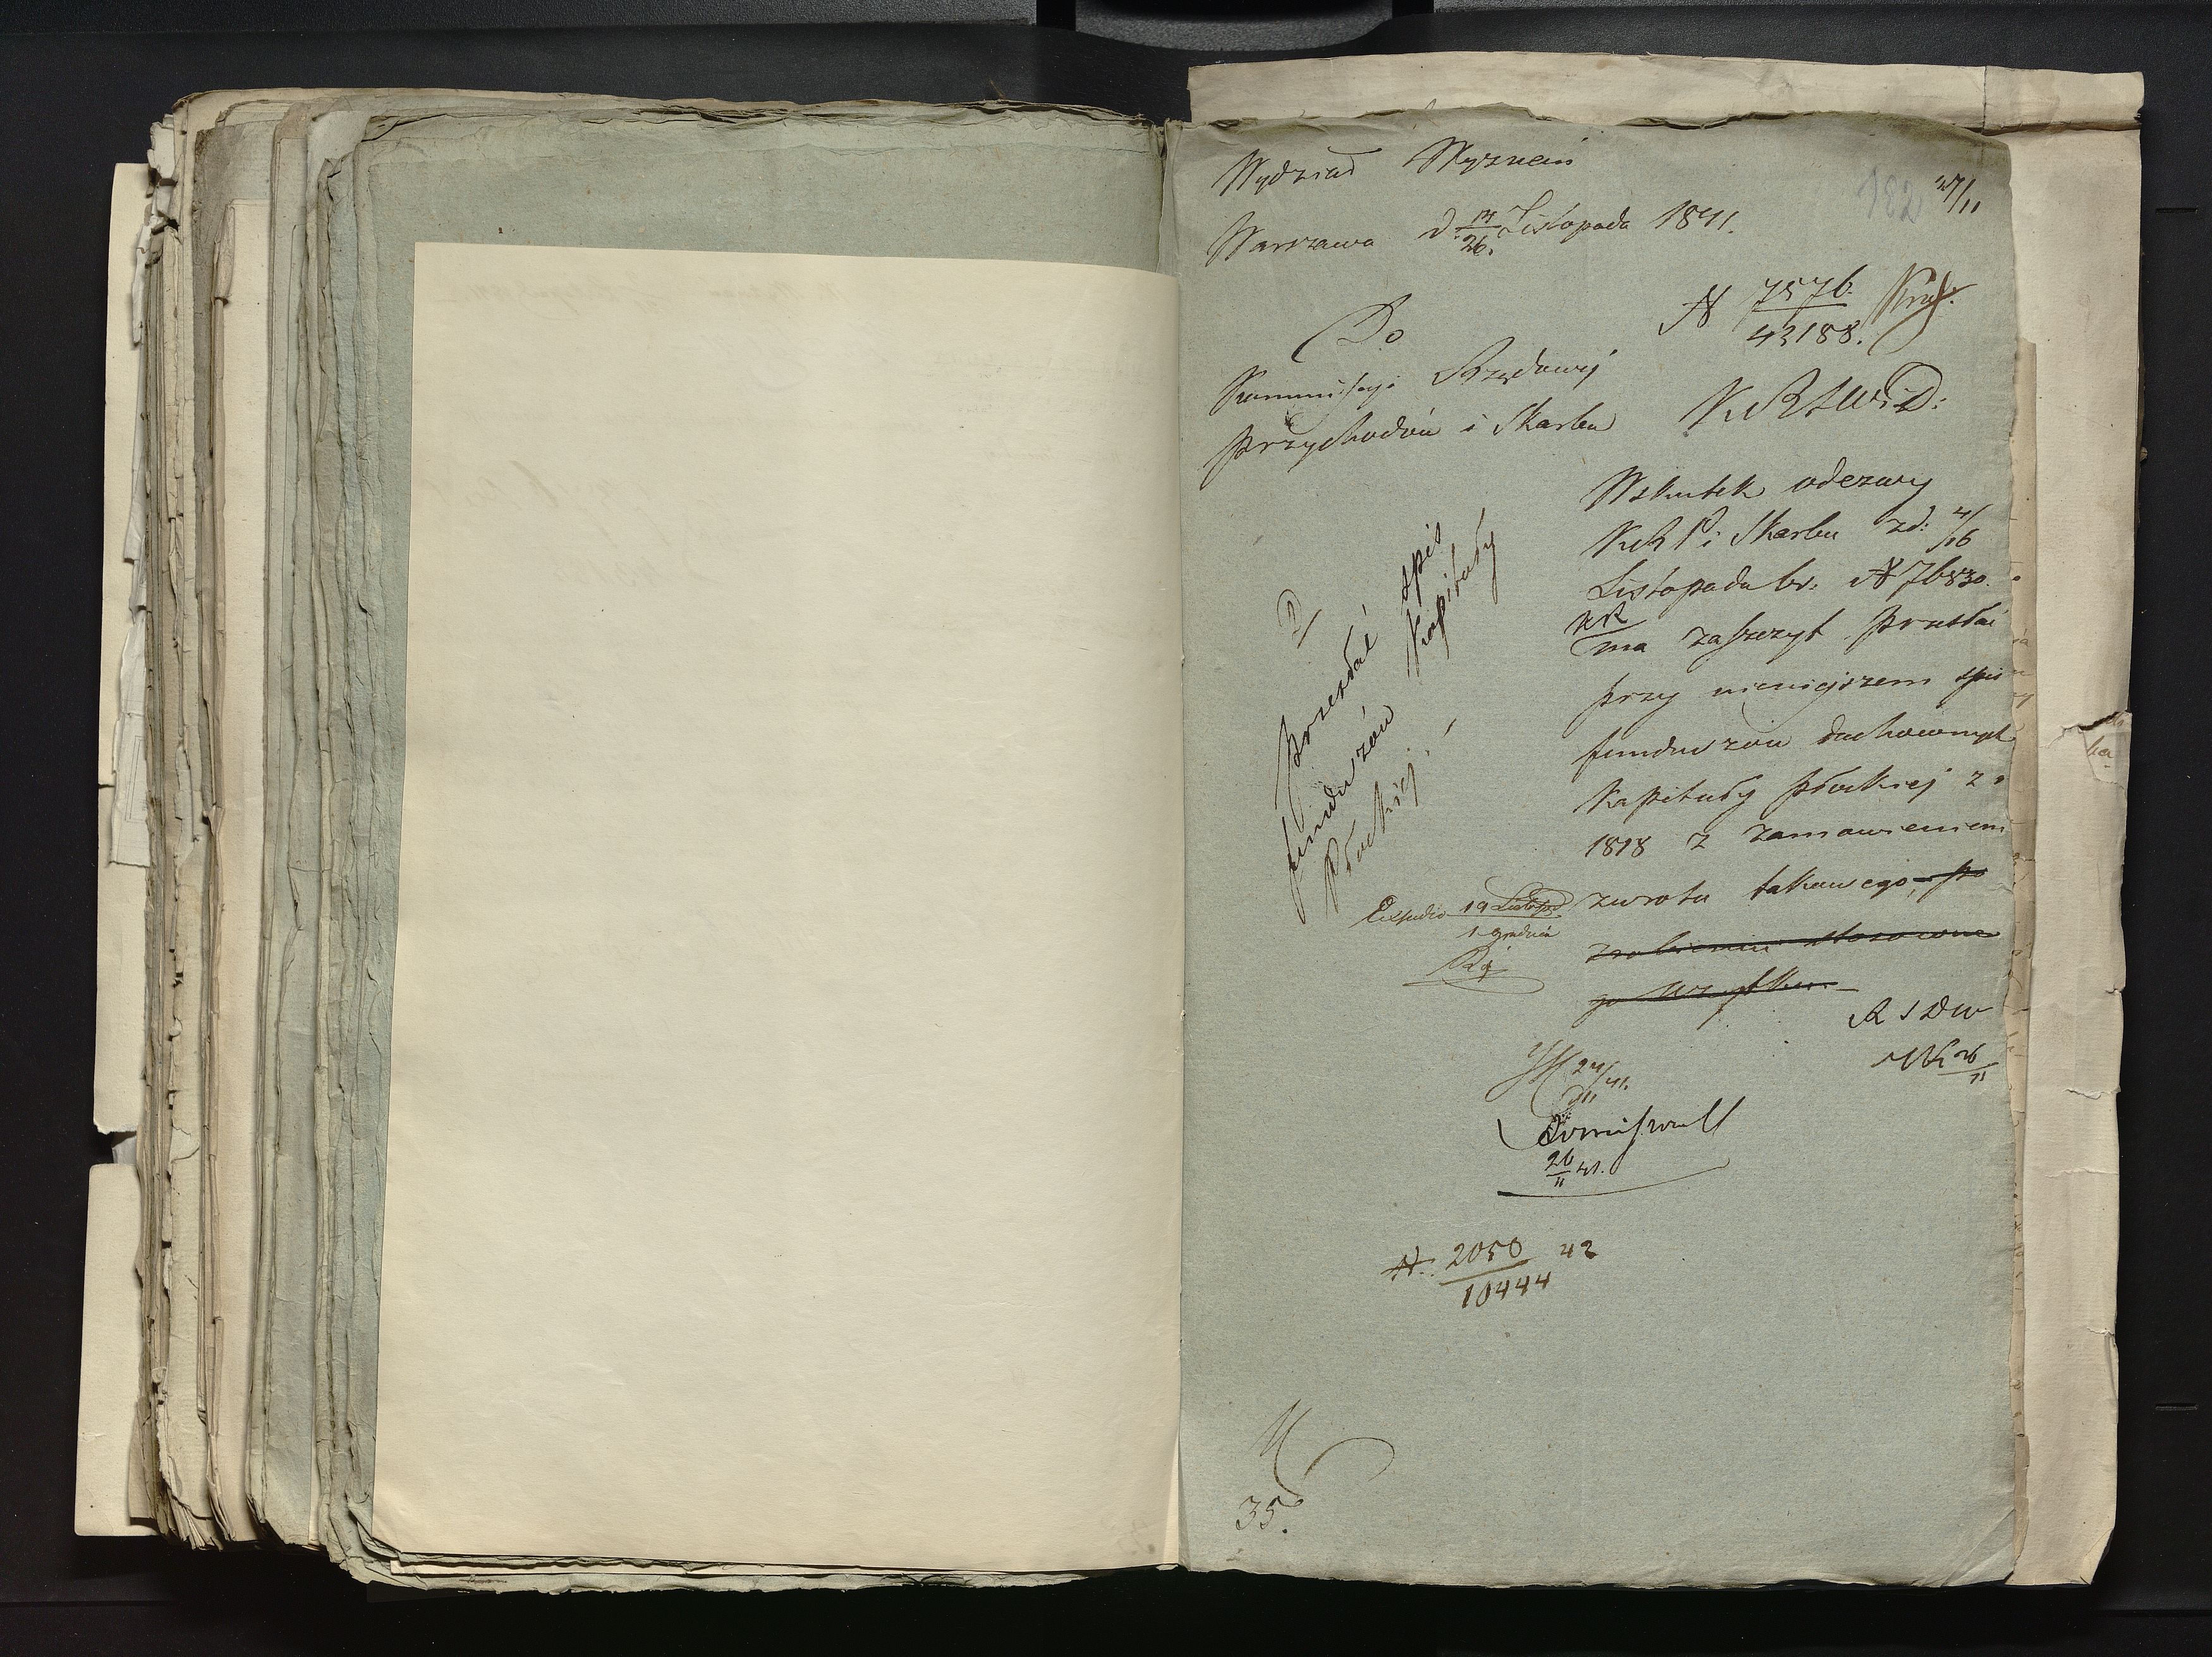 Wydział Wyznań
182 27/11
Warszawa d: 14/26. Listopada 1841.
N 7576./43188.
Do
Kommissyi Rządowéj
Przychodów i Skarbu
KRSWiD:
Wskutek odezwy
KRP i Skarbu zd: 4/16
Listopada br: N 76830.
KR
ma zaszczyt przesłać
przy niniejszem spis
funduszów duchownych
Kapituły Płockiej z r
1818 z zamówieniem
zwrotu takowego, po
zrobieniu stosowne
go użytku.
D
przesłać spis
funduszów Kapituły
Płockiej. –
Expedio 19 Listop/1 grudnia
R S D W
26/11
24/11 41.
26/11 41.
N. 2050/10444 42
M
35.